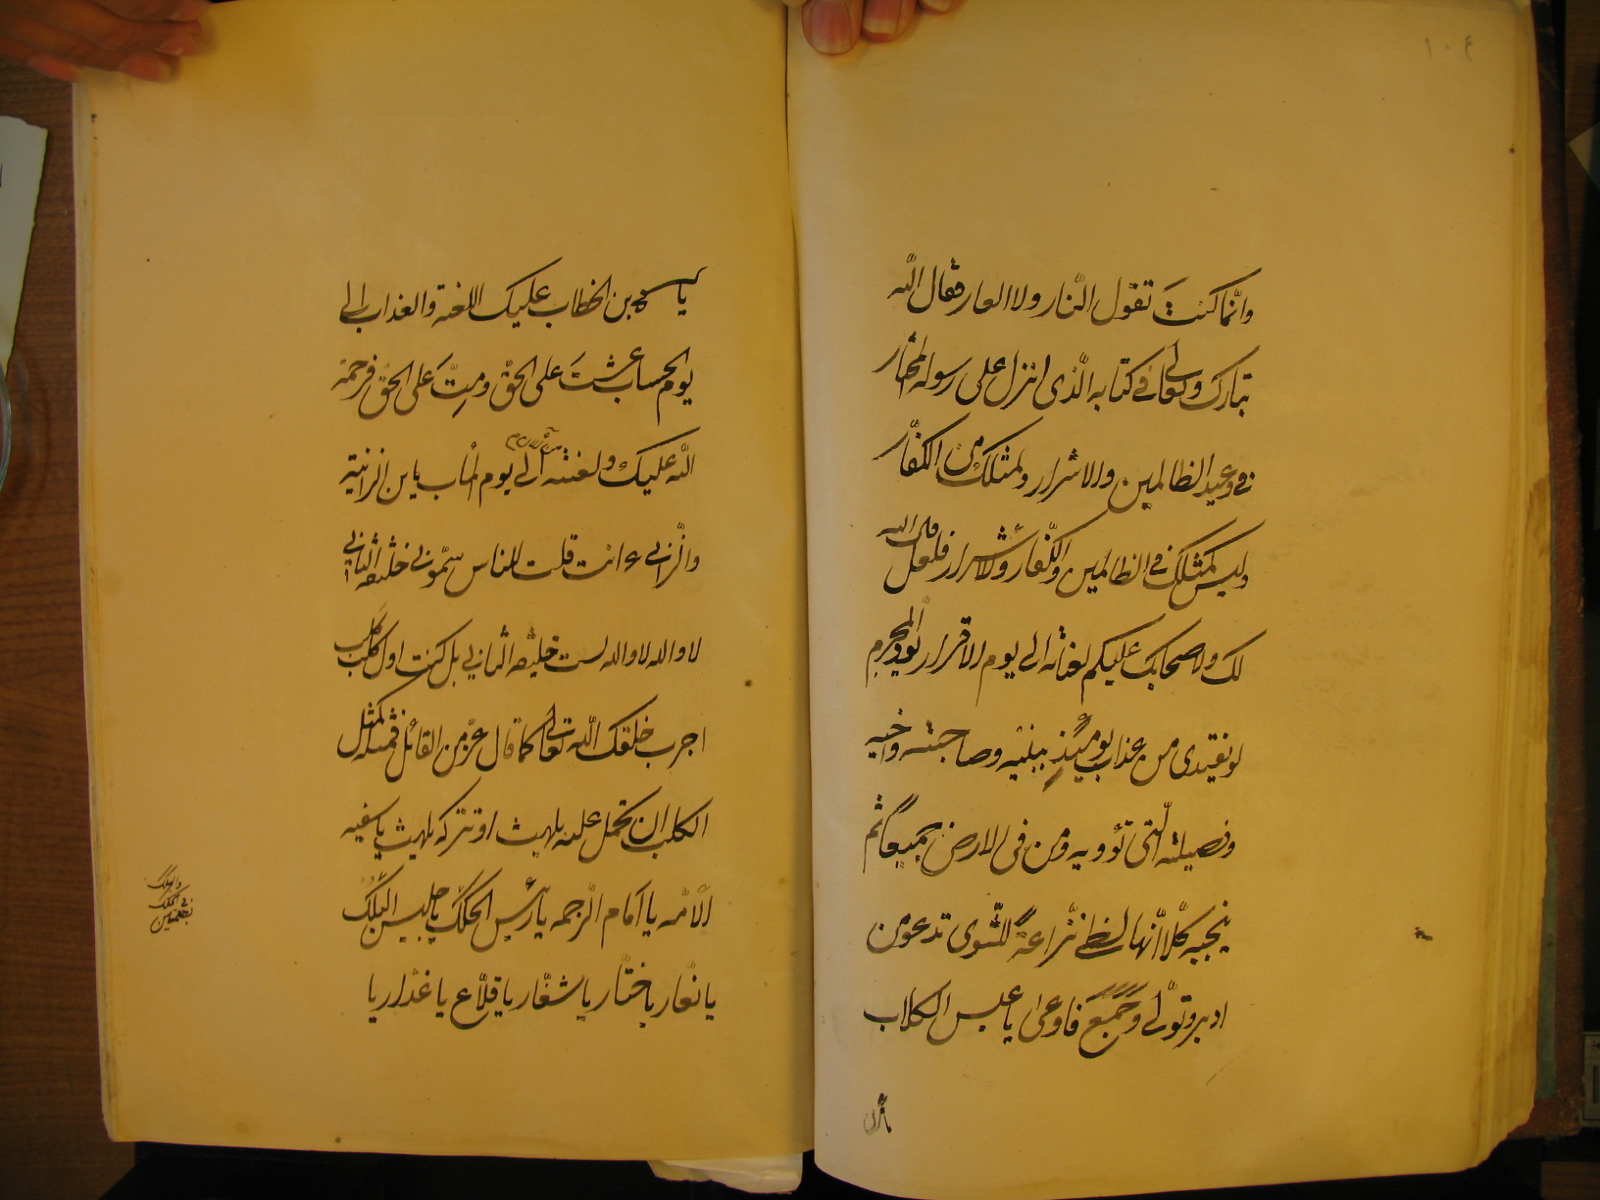 ١٠٤
وانّما كنتَ تقول النّار ولا العار فقال اللّه
تبارك وتعالى في كتابه الّذى انزل على رسوله المختار
في وعيد الظالمين والاشرار ولمثلك من الكفّار
وليس كمثلك في الظالمين والكفّار ولاشرار فلعن اللّه
لك ولاصحابك عليكم لعناته الى يوم الاقرار يودّ المجرم
لو يفتدى من عذاب يومئذٍ ببنيه وصاحبته واخيه
وفصيلته الّتى تؤويه ومن فى الارض جميعا ثم
ينجيه كلّا انّها لظى نزّاعة للشّوى تدعو من
ادبر وتولّى وجمَعَ فاوعى يا عبس الكلاب
يا بن الخطاب عليك اللعنة والعذاب الى
يوم الحساب عشتَ على الحقّ ومِتَّ على الحقّ فرحمة
اللّه عليك ولعنته الى يوم المآب يابن الزانية
والزّانى ءانت قلت للناس سمّونى خليفه الثانى
لا والله لا والله لست خليفه الثانى بل كنت اول كلب
اجرب خلقك اللّه تعالى كما قال عزّ من القائل فمثله كمثل
الكلب ان تحمل عليه يلهث او تتركه يلهث يا سفيه
الامّه يا امام الرّجمه يا رئيس الحلك يا جليس البلك
يا نعّار يا ختّار يا شغّار يا قلّاع يا غدّار يا